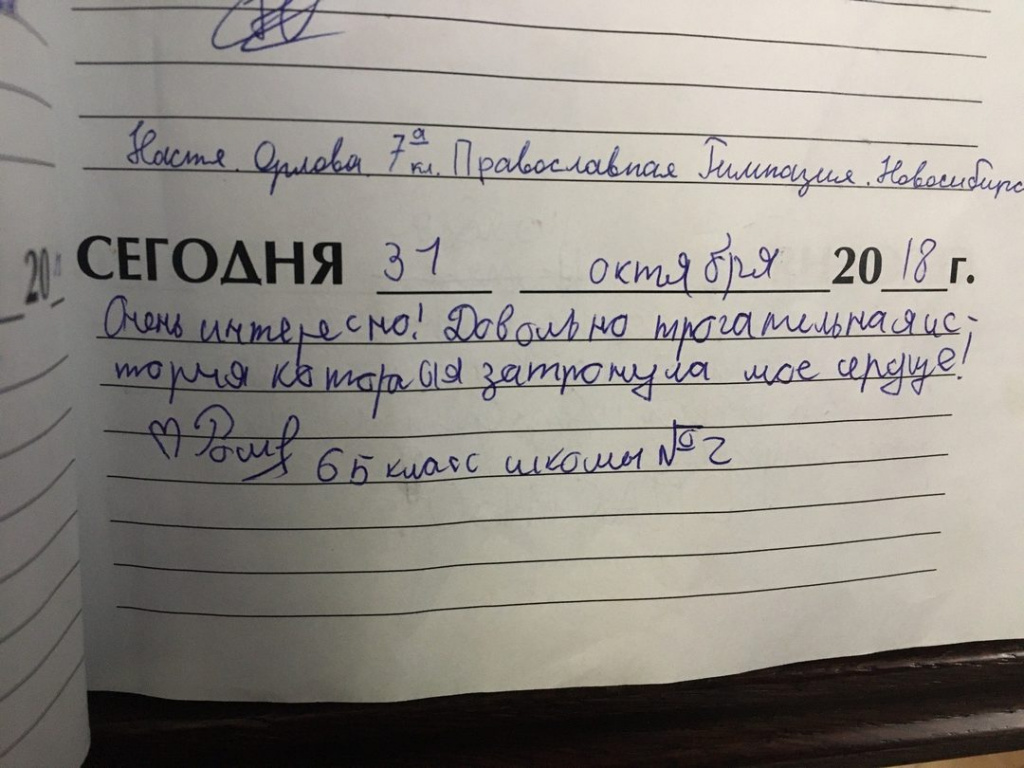 Настя Орлова 7а кл. Православная Гимназия. Новосибирс
20
СЕГОДНЯ 31 октября 2018 г.
Очень интересно! Довольно трогательная ис-
тория которая затронула мое сердце!
♡ 6Б класс школы №2